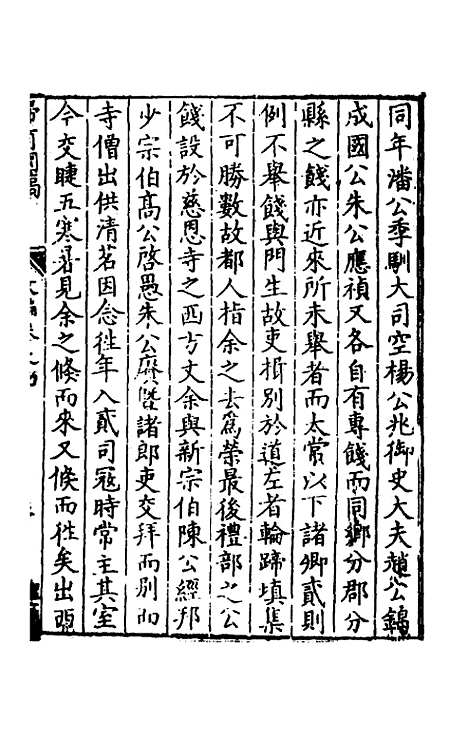 同年潘公季馴大司空楊公兆御史大夫趙公錦
成國公朱公應禎又各自有專餞而同鄉分郡分
縣之餞亦近來所未舉者而太常以下諸卿貳則
例不舉餞與門生故吏揖別於道左者輪蹄填集
不可勝數故都人指余之去爲榮最後禮部之公
餞設於慈恩寺之西方丈余與新宗伯陳公經邦
少宗伯髙公啓愚朱公賡曁諸郎吏交拜而別而
寺僧出供清茗因念徃年入貳司寇時常主其室
今交睫五寒暑見余之倏而來又倏而徃矣出